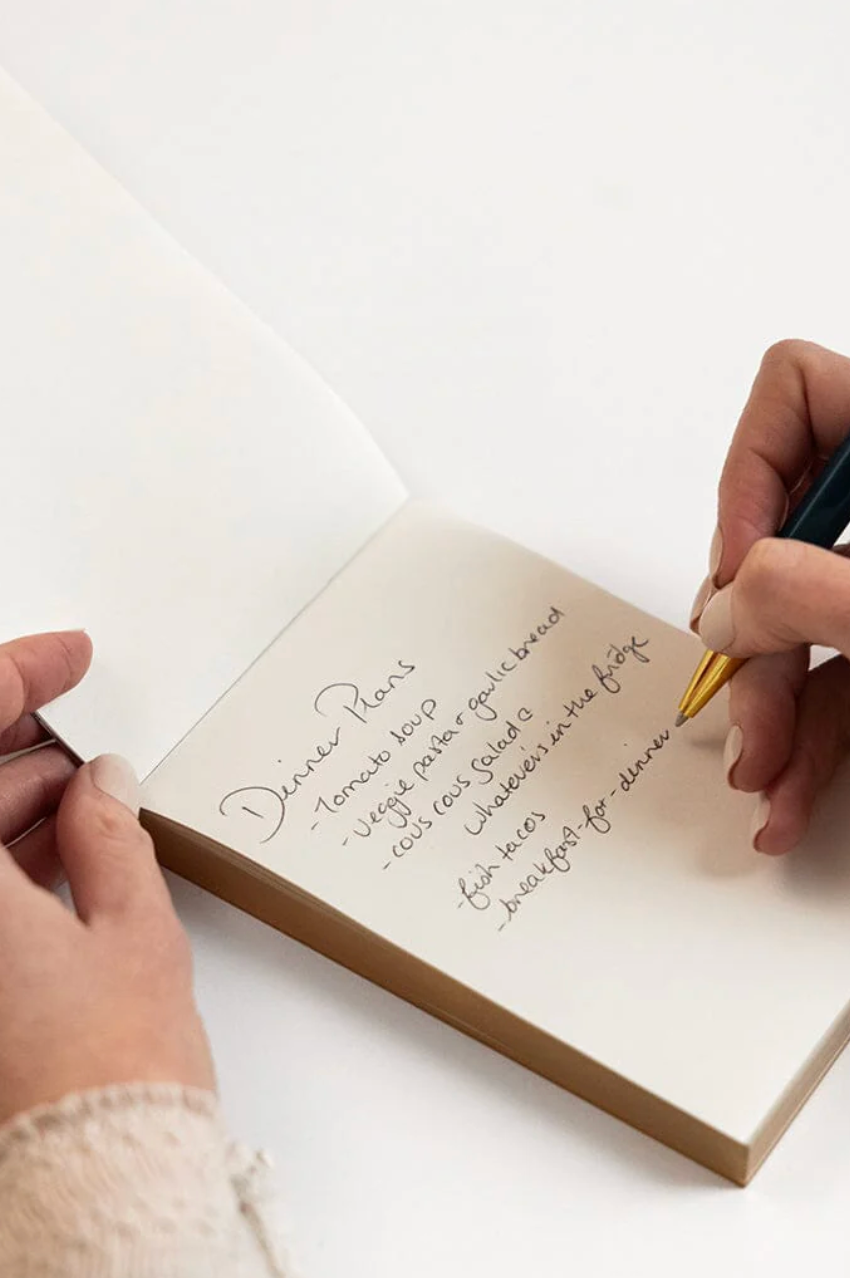 Dinner Plans
- Tomato soup
- veggie pasta + garlic bread
- cous cous salad c
whatever's in the fridge
- fish tacos
- breakfast-for-dinner